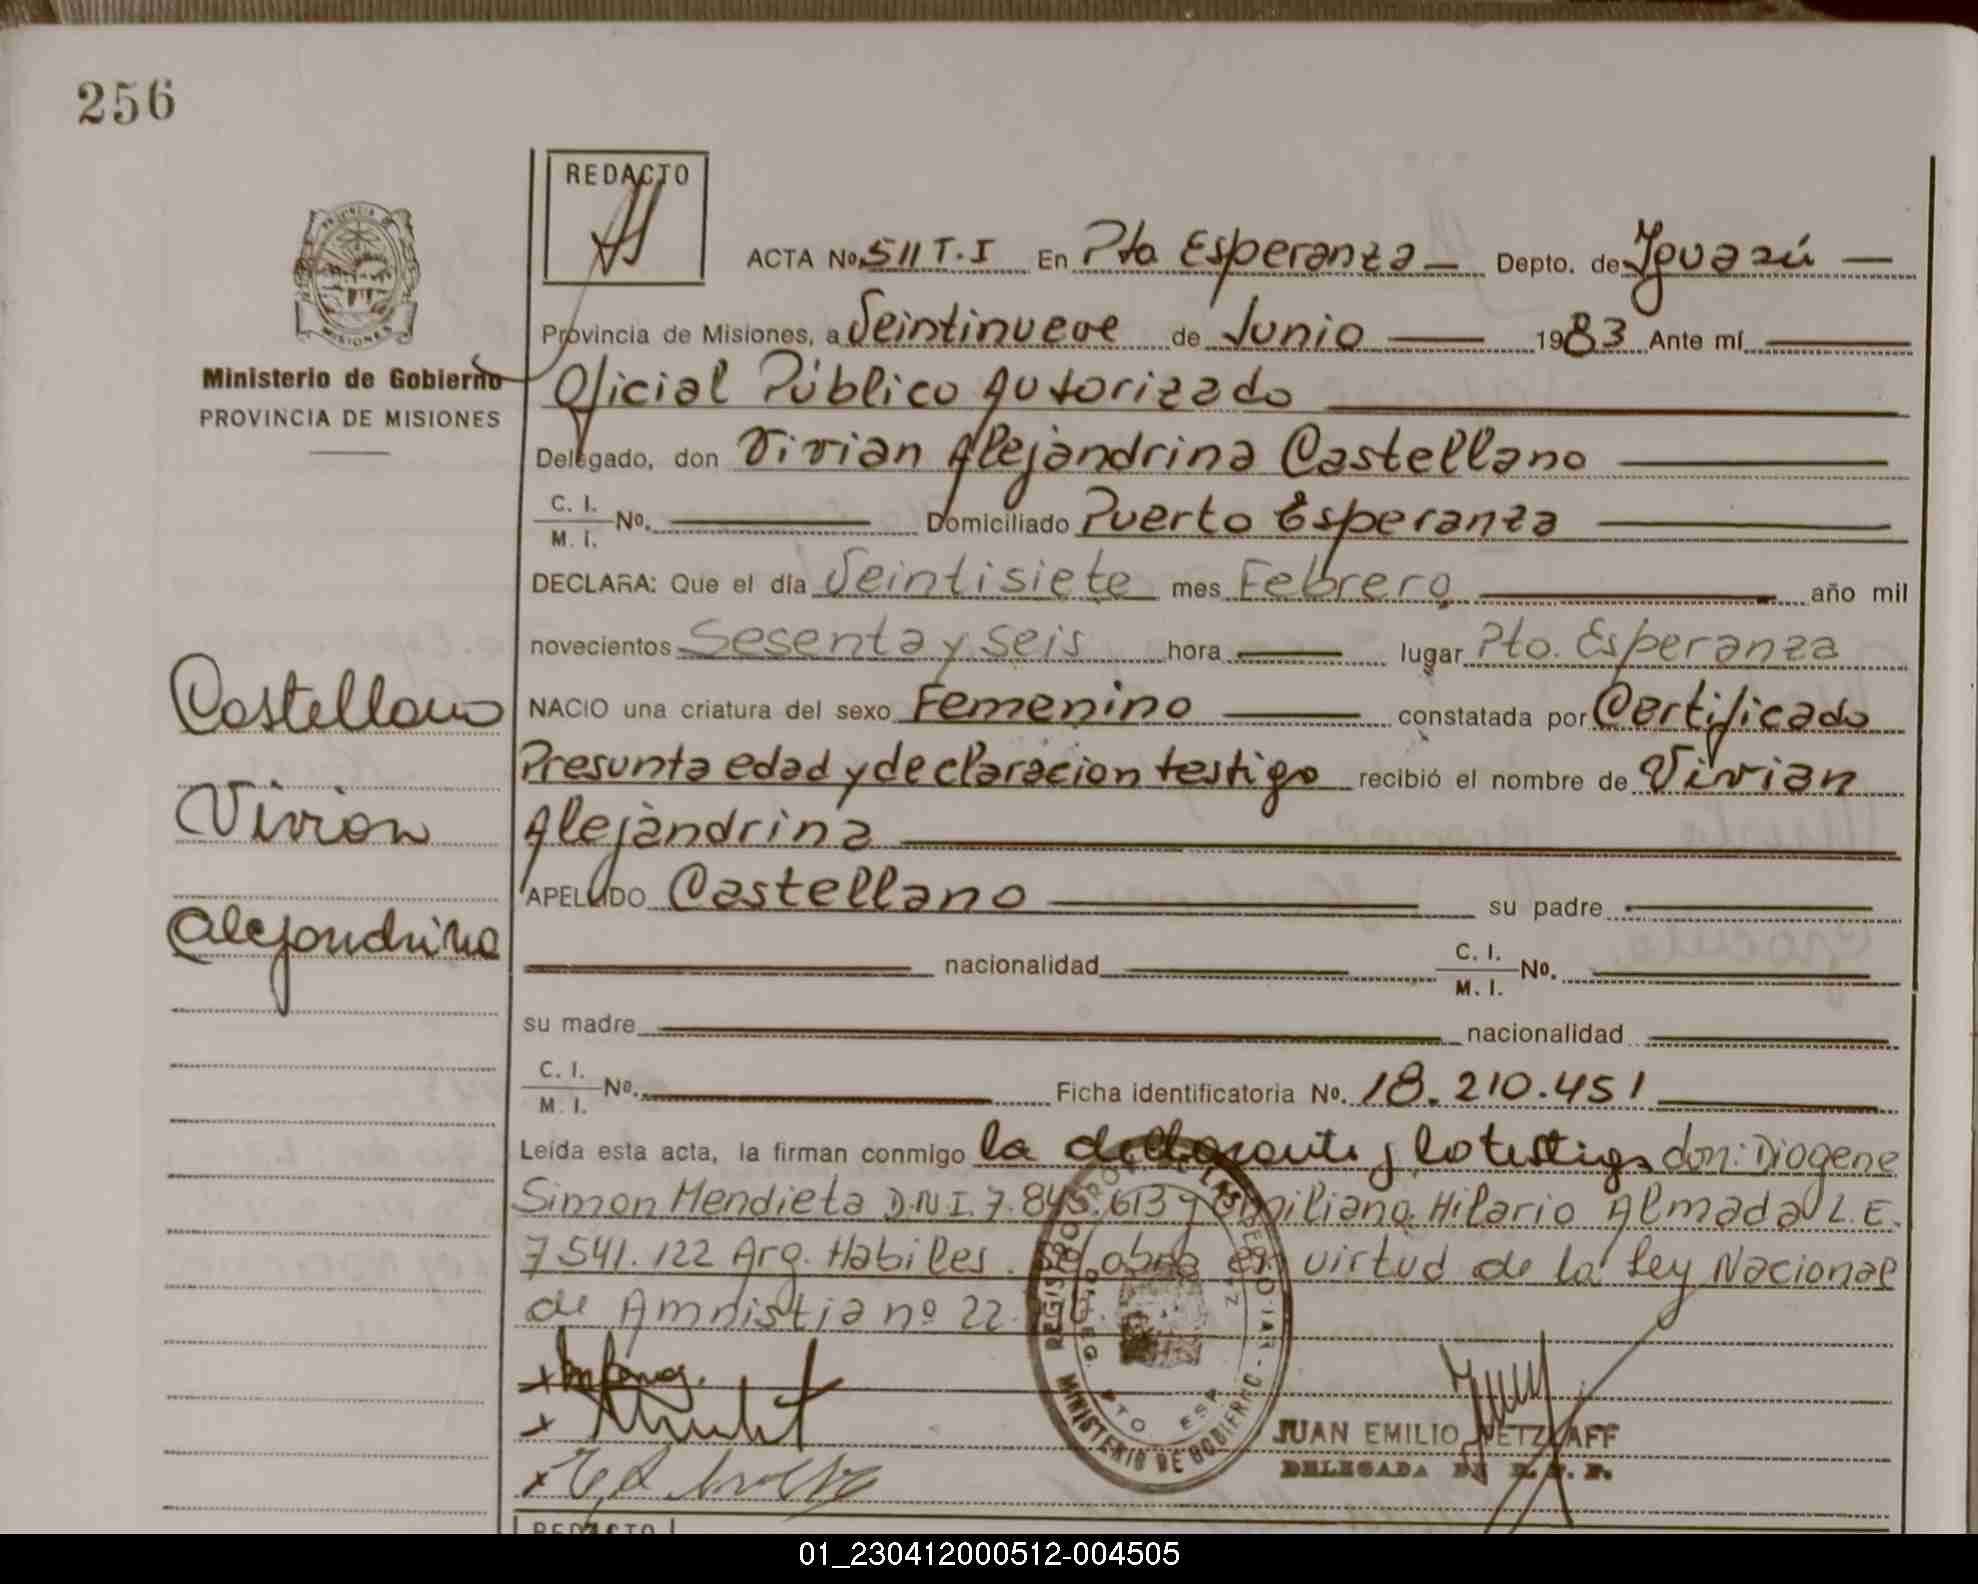 256
REDACTO
ACTA No. 511 T.I En Pto Esperanza Depto. de Iguazú
Provincia de Misiones, a Veintinueve de Junio 1983 Ante mí
Oficial Público Autorizado
Delegado, don Vivian Alejandrina Castellano
C. I.
M. I. No. Domiciliado Puerto Esperanza
DECLARA: Que el día Veintisiete mes Febrero año mil
novecientos Sesenta y seis hora lugar Pto. Esperanza
NACIO una criatura del sexo Femenino constatada por Certificado
Presunta edad y declaracion testigo recibió el nombre de Vivian
Alejandrina
APELLIDO Castellano su padre
nacionalidad C. I.
M. I. No.
su madre nacionalidad
C. I.
M. I. No. Ficha identificatoria No. 18.210.451
Leída esta acta, la firman conmigo la y lo testigo don: Diogene
Simon Mendieta D.N.I. 7.845.613 y Emiliano Hilario Almada L.E.
7541.122 Arg. Habiles. en virtud de la Ley Nacional
de Amnistia nº 22.
PROVINCIA DE
MISIONES
Ministerio de Gobierno
PROVINCIA DE MISIONES
Castellano
Vivian
Alejandrina
MINISTERIO DE GOBIERNO
PTO ESP
JUAN EMILIO
REDACTO
01_230412000512-004505